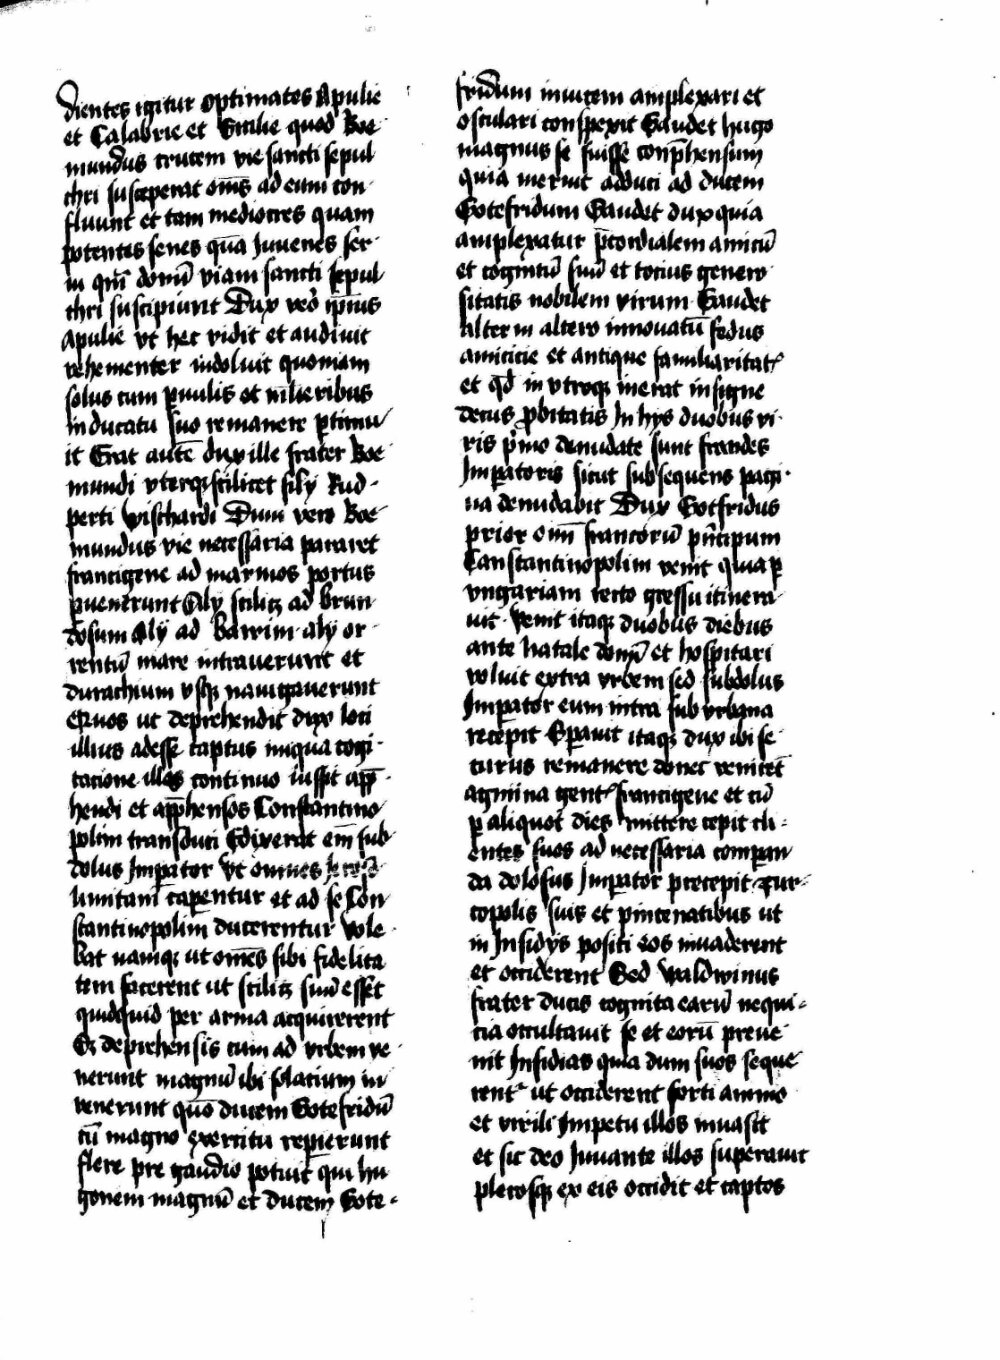 dientes igitur optimates Apulie
et Calabrie et Sicilie quod Boe
mundus crucem vie sancti sepul
chri susceperat om̄s ad eum con
fluunt et tam mediocres quam
potentes senes qua̅ Juvenes ser
ui qm̅ domū viam sancti sepul
chri suscipiunt Dux ve͡o ip̅ius
Apulie vt hec vidit et audiuit
vehementer indoluit quoniam
solus cum puulis et mlieribus
in ducatu suo remanere ptimu
it Erat aute̅ dux ille frater Boe
mundi vterqꝫ scilicet filÿ Rud
perti Wischardi Dum vero Boe
mundus vie necessaria pararet
francigene ad marmos portus
puenerunt Alÿ scilicꝫ ad brun
dosum Alÿ ad Barrim alÿ or
rentū mare intrauerunt et
durachium vsqꝫ nauigauerunt
Equos ut deprehendit dux loci
illius adesse captus iniqua cogi
tacione illos continuo iussit app̅
hendi et app̅hensos Constantino
polim transduci Edixerat em̅ sub
dolus Imperator vt omnes
limitani caperentur et ad se Con
stantinopolim ducerentur Vole
bat namqꝫ ut om̅es sibi fidelita
tem facerent ut scilicꝫ suū esset
quidquid per arma acquirerent
Sꝫ deprehensis cum ad vrbem ve
nerunt magnū ibi solatium in
venerunt quo̅ ducem Gotefridū
cū magno exercitu repierunt
flere pre gaudio potuit qui hu
gonem magnū et ducem Gote
fridum inuicem amplexari et
osculari conspexit Gaudet hugo
magnus se fuisse conp̅hensum
quia meruit adduci ad ducem
Gotefridum Gaudet dux quia
amplexatur p̅cordialem amicū
et cognitū suū et totius genero
sitatis nobilem virum Gaudet
alter in altero innouatū fedus
amicicie et antique familiaritatꝭ
et qd̅ in vtroqꝫ inerat insigne
decus p̱bitatis In hÿs duobus vi
ris p̅mo denudate sunt fraudes
Imꝑatoris sicut subsequens pagi
na denudabit Dux Gotfridus
prior om̅ francorū pn̅cipum
Constantinopolim venit quia ꝑ
vngariam recto gressu itinera
uit Venit itaqꝫ duobus diebus
ante natale domi̅ et hospitari
voluit extra vrbem sed subdolus
Imꝑator eum intra suburbana
recepit Speͣuit itaqꝫ dux ibi se
turus remanere donec veniret
agmina gentꝭ francigene et cū
ꝑ aliquot dies mittere cepit cli
entes suos ad necessaria compan
da dolosus Imꝑator precepit Tur
copolis suis et pincenatibus ut
in Insidÿs positi eos inuaderent
et occiderent Sed Waldwinus
frater ducis cognita earū nequi
cia occultauit se et eorū preue
nit Insidias quia dum suos seque
rentᷣ ut occiderent forti animo
et virili Impetu illos inuasit
et sic deo Iuuante illos superauit
pletosqꝫ ex eis occidit et captos